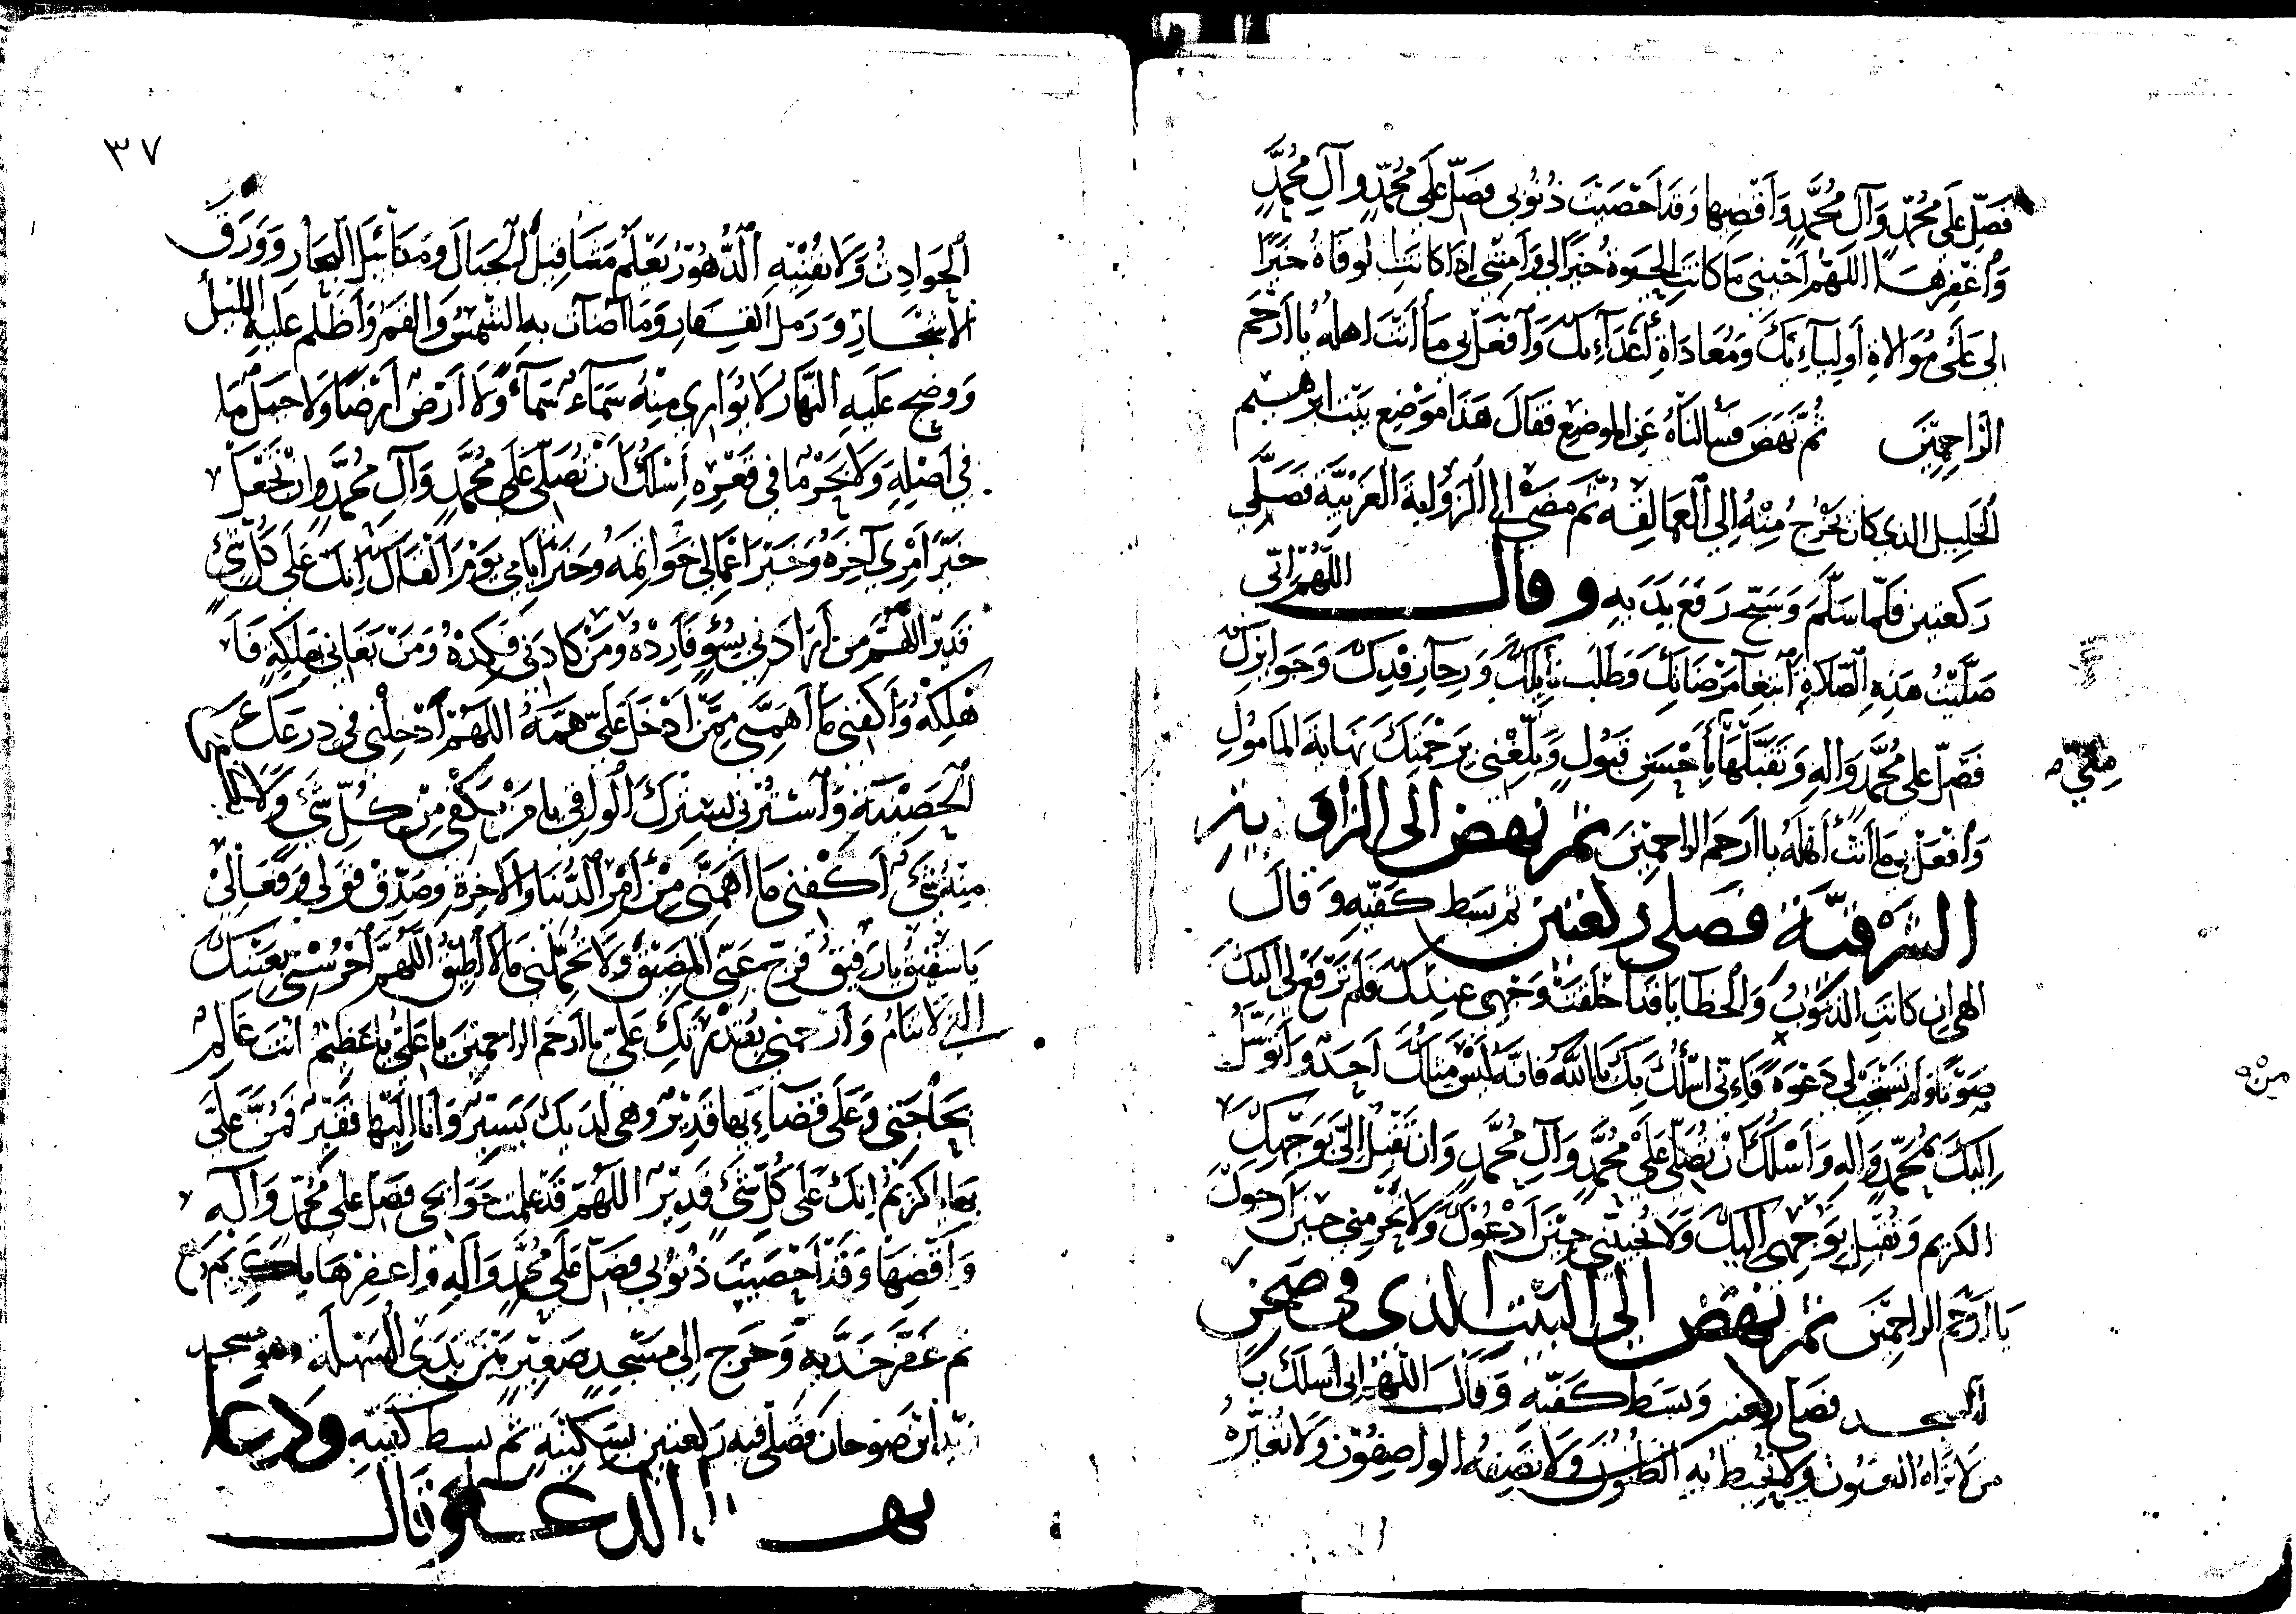 فَصَلِّ عَلَى مُحَمَّدٍ وَآلِ مُحَمَّدٍ وَاَقْضِهَا وَقَدْ اَحْصَيْتَ ذُنُوبِي فَصَلِّ عَلَى مُحَمَّدٍ وَآلِ مُحَمَّدٍ
وَاغْفِرْهَا اَللّهُمَّ اَحْيِنِي مَا كَانَتِ الْحَيوةُ خَيْرًا لِي وَاَمِتْنِي اِذَا كَانَتِ الْوَفَاةُ خَيْرًا
لِي عَلَى مُوَالَاةِ اَوْلِيَآءِكَ وَمُعَادَاةِ اَعْدَآءِكَ وَاَفْعَلْ بِي مَا أَنْتَ اهْلُهُ يَا اَرْحَمَ
الرَّاحِمِينَ ثُمَّ نَهَضَ فَسَأَلْنَاهُ عَنِ الموضِع فَقَالَ هَذَا مَوْضِع بَيْت ابرهيم
الخَلِيل الذي كَانَ يَخْرُجُ مِنْهُ اِلَى العَمَالِقَه ثُمَّ مَضَى اِلَى الزَّوايةِ الغَرْبِيَّةِ فَصَلَّى
رَكعتين فَلَمَّا سَلَّمَ وَسَبَّحَ رَفَعَ يَدَيْهِ وقال اللّهُمَّ اِنّي
صَلَّيْتُ هَذِهِ الصَّلَاةَ ابْتِغَآءَ مَرْضَاتِكَ وَطَلَبَ نَآيِلِكَ وَرِجَآءَ رِفْدِكَ وَجَوَايِزِكَ
فَصَلِّ عَلى مُحَمَّدٍ وَالِهِ وَتَقَبَّلْهَا بِأَحْسَنِ قَبُولٍ وَبَلِّغْنِي بِرَحْمَتِكَ نِهَايَةَ المَامُولِ
وَافْعَلْ بِي مَا أَنْتَ أَهْلُهُ يَا اَرْحَمَ الراحِمِينَ ثم نهض الى الزاوية
الشرقيّة فصلى ركعتين ثم بَسَط كَفَّيْهِ وَقَالَ
الهي اِن كَانَتِ الذُّنُوبُ وَالخَطَايَا قَدْ اَخْلَقَتْ وَجْهِي عِنْدَكَ فَلَمْ تَرْفَعْ لِي اِلَيْكَ
صَوْتًا وَلَمْ تَسْتَجِبْ لِي دَعْوَةً فَاِنّي اَسْأَلُكَ بِكَ يَا اللهُ فَاِنَّهُ لَيْسَ مِثْلَكَ اَحَدٌ وَاَتَوَسَّلُ
اِلَيْكَ بِمُحَمَّدٍ وَالِهِ وَاَسْئَلُكَ اَنْ تُصَلِّيَ عَلَى مُحَمَّدٍ وَآلِ مُحَمَّدٍ وَاَن تُقْبِلَ اِلَيَّ بِوَجْهِكَ
الكَرِيم وَتُقْبِلَ بِوَجْهِي اِلَيْكَ وَلَا تُخَيِّبْنِي حِيْنَ اَدْعُوكَ وَلَا تَحْرِمْنِي حِيْنَ اَرْجُوكَ
يَا اَرْحَمَ الراحِمِيْنَ ثم نهض الى البيت الذى فى صحن
المسجد فَصَلَّى ركعتين وَبَسَطَ كَفَّيْهِ وَقَالَ اللّهُمَّ اِنّي اَسْئَلُكَ يَا
مَن لَا تَرَاهُ العُيُون وَلَا تُحِيطُ بِهِ الظُّنُونُ وَلَا يَصِفُهُ الوَاصِفُونَ وَلَا تُغَيِّرُهُ
مِنِّي
من
٣٧
الحَوَادِثُ وَلَا تُفْنِيْهِ الدُّهُوْرُ تَعْلَمُ مَثَاقِيلَ الْجِبَالَ وَمَكَائِيلَ البِحَار وَوَرَقَ
الاشْجَارِ وَرَمل القِفَارِ وَمَا اَضَآت بِهِ الشَّمْسُ وَالقَمَرُ وَاَظْلَم عَلَيْهِ الليْلُ
وَوَضحَ عَلَيْهِ النَّهَارُ لَا يُوَارِي مِنْهُ سَمَآءٌ سَمَآءً وَلَا اَرْضٌ اَرْضًا وَلَا جَبَلٌ مَا
فِي اَصْلِهِ وَلَا بَحْرٌ مَا فِي قَعْرِهِ اَسْئَلُكَ اَنْ تُصَلِّيَ عَلَى مُحَمَّدٍ وَآلِ مُحَمَّدٍ وَاَنْ تَجْعَلَ
خَيْرَ اَمْرِي آخِرَهُ وَخَيْرَ اَعْمَالِي خَوَاتِمَهُ وَخَيْرَ اَيَّامِي يَوْمَ اَلْقَاكَ اِنَّكَ عَلَى كُلِّ شَيْءٍ
قَدِيْرٌ اللّهُمَّ مَن اَرَادَنِي بِسُوْءٍ فَاَرِدْهُ وَمَنْ كَادَنِي فَكِدْهُ وَمَنْ بَغَانِي بِهَلَكَةٍ فَاَ
هْلِكْهُ وَاَكْفِنِي مَا اَهَمَّنِي مِمَّنْ اَدْخَلَ عَلَيَّ هَمَّهُ اللّهُمَّ اَدْخِلْنِي فِي دِرْعِكَ
الحَصِيْنَةِ وَاسْتُرْنِي بِسِتْرِكَ الوَاقِي يا مَنْ يَكْفِي مِنْ كُلِّ شَيْءٍ وَلَا
مِنْهُ شَيْءٌ اَكْفِنِي مَا اَهَمَّنِي مِنْ أَمْرِ الدُّنْيَا وَالاخِرَةِ وصَدِّقْ قَوْلِي وَفَعَالِي
يَا شَفِيْقُ يَا رَفِيْقُ فَرِّجْ عَنِّي المَضِيْقَ وَلَا تُحَمِّلْنِي مَا لَا اُطِيْقُ اللّهُمَّ اَحْرُسْنِي بِعَيْنِكَ
التي لَا تَنَامُ وَاَرْحَمْنِي بِقُدْرَتِكَ عَلَيَّ يا اَرْحَمَ الراحِمِيْنَ يا عَلِيُّ يا عَظِيْمُ اَنْتَ عَالِمٌ
بِحَاجَتِي وَعَلَى قَضَآءِهَا قَدِيْرٌ وَهِيَ لَدَيْكَ يَسِيْرٌ وَاَنَا اِلَيْهَا فَقِيْرٌ فَمُنَّ عَلَيَّ
بِهَا يا كَرِيْمُ اِنَّكَ عَلى كُلِّ شَيْءٍ قَدِيْرٌ اللّهُمَّ قَدْ عَلِمْتَ حَوَائِجي فَصَلِّ عَلَى مُحَمَّدٍ وَالِهِ
وَاَقْضِهَا وَقَدْ اَحْصَيْتَ ذُنُوْبِي فَصَلِّ عَلَى مُحَمَّدٍ وَالِهِ وَاغْفِرْهَا يا كَرِيْمُ
ثم عَفَّرَ خَدَّيْهِ وَخَرَجَ اِلَى مَسْجِدٍ صَغِيْرٍ بَيْنَ يَدَي السَّهْلَة وهو مسجد
زيد اِبْن صُوحَان فَصَلَّى فيه ركعتين بِسَكِيْنَةٍ ثم بسط كَفَّيْه ودعا
بهذا الدعاء وقال